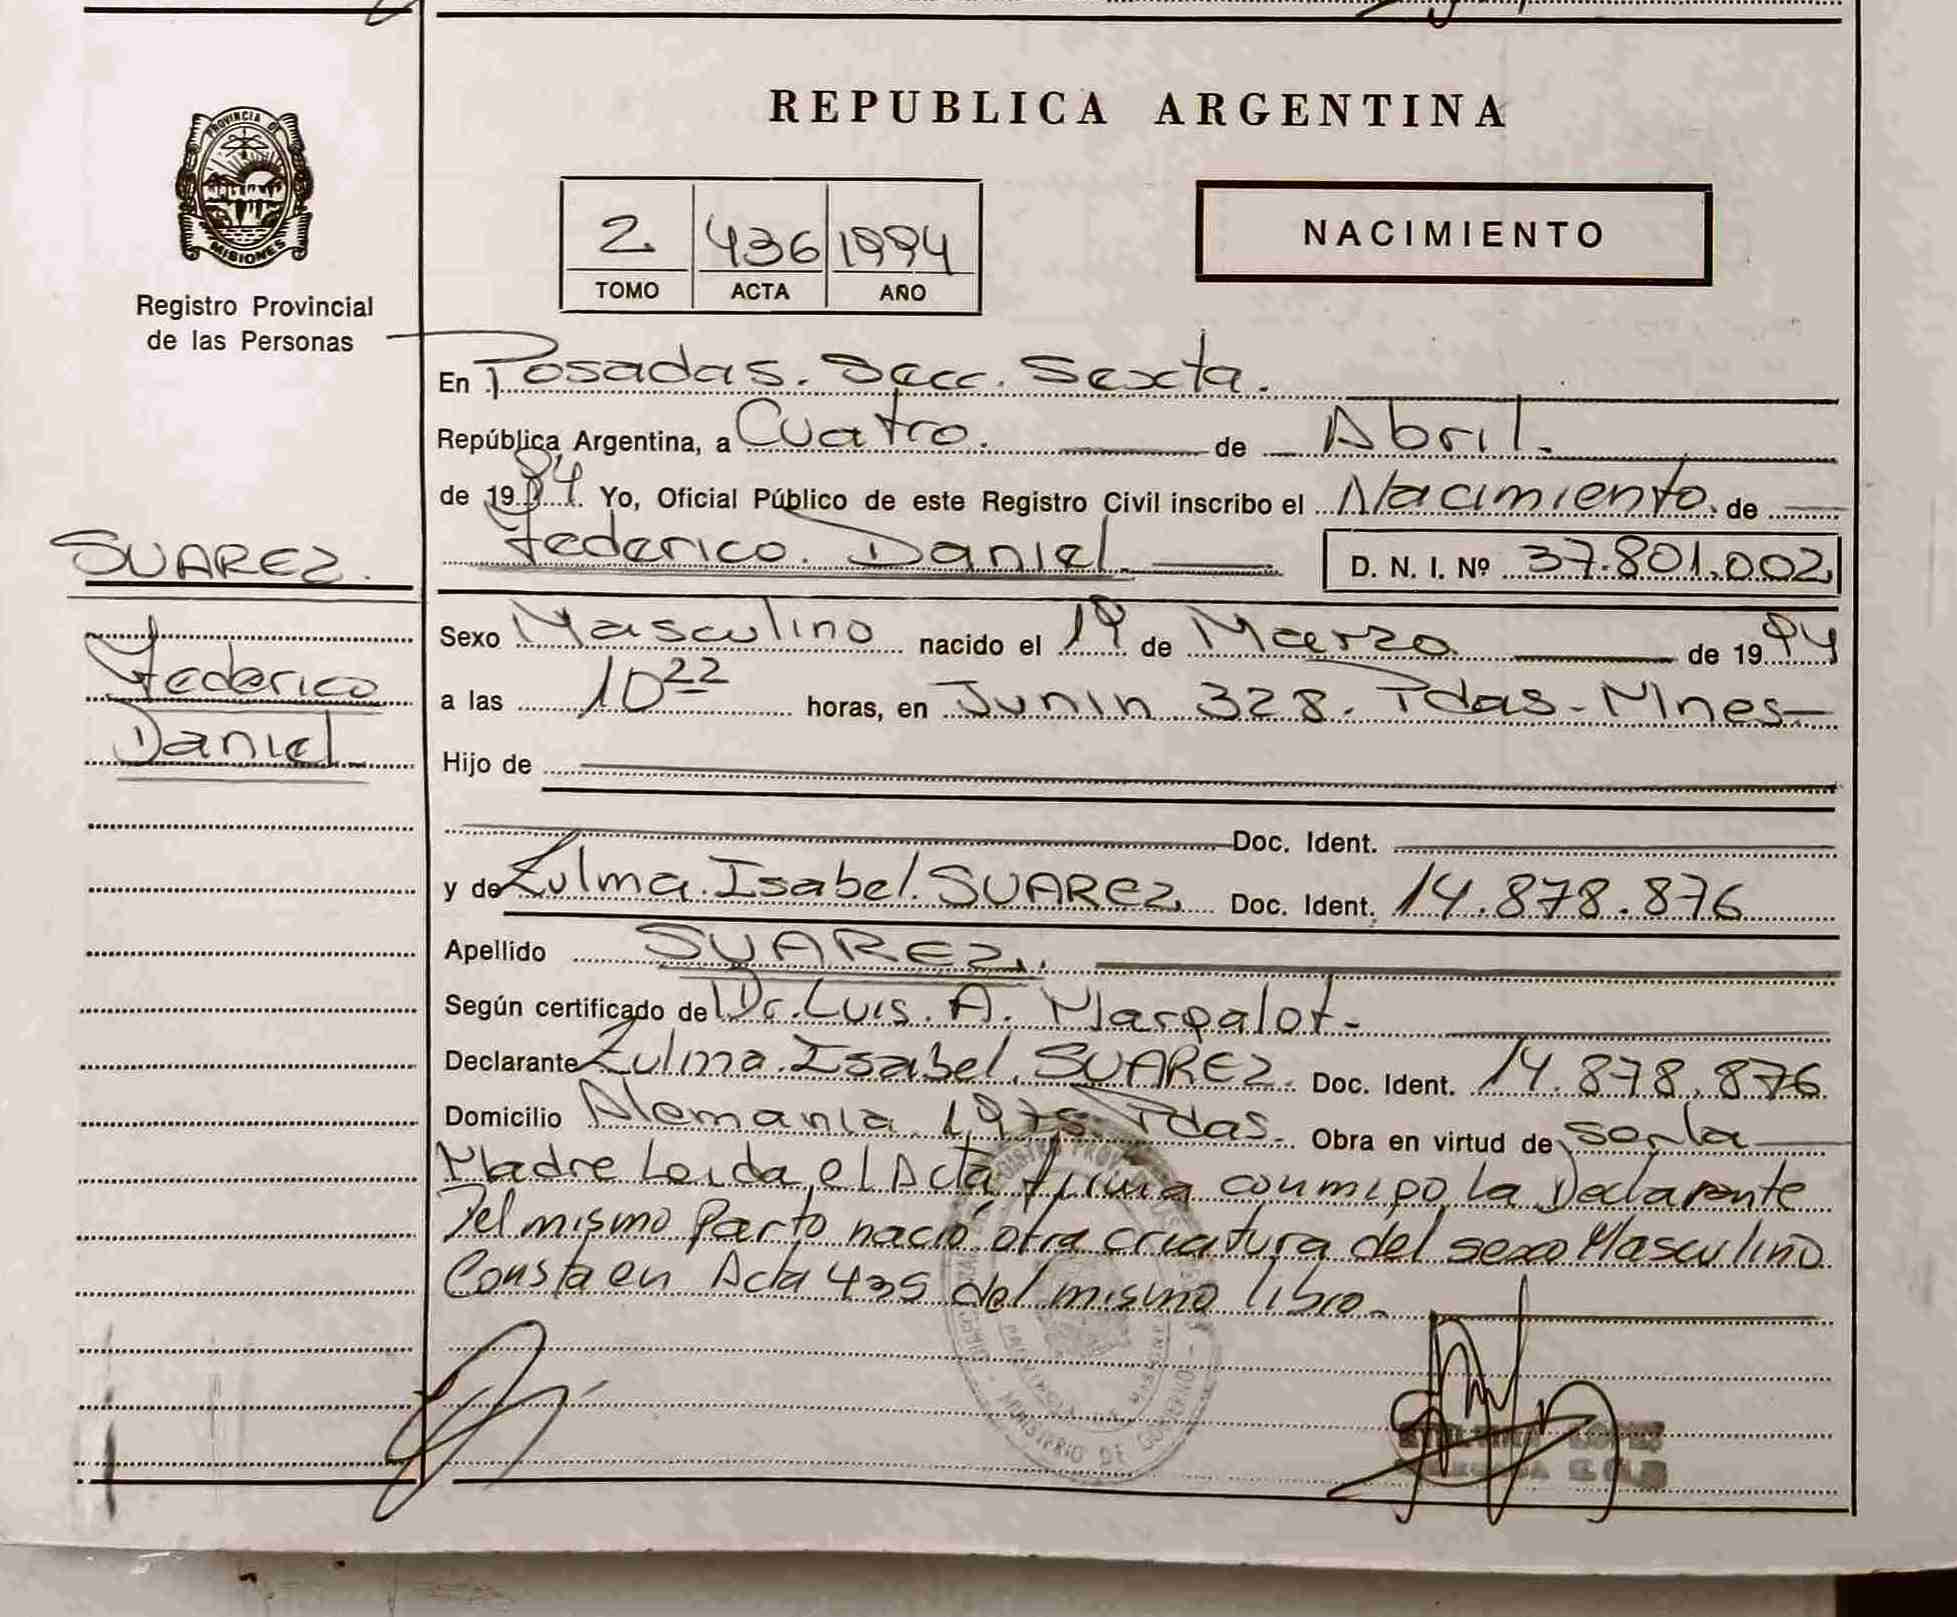 REPUBLICA ARGENTINA
PROVINCIA DE
MISIONES
Registro Provincial
de las Personas
2 436 1994
TOMO ACTA AÑO
NACIMIENTO
En Posadas. Secc. Sexta.
República Argentina, a Cuatro. de Abril.
de 1994. Yo, Oficial Público de este Registro Civil inscribo el Nacimiento. de
Federico. Daniel D. N. I. Nº 37.801.002
SUAREZ.
Federico
Daniel
Sexo Masculino nacido el 19 de Marzo de 1994
a las 10 22 horas, en Junin 328. Pdas-Mnes-
Hijo de
Doc. Ident.
y de Zulma. Isabel. SUAREZ Doc. Ident. 14.878.876
Apellido SUAREZ.
Según certificado de Dr. Luis. A. Margalot-
Declarante Zulma. Isabel. SUAREZ. Doc. Ident. 14.878.876
Domicilio Alemania 1975. Pdas. Obra en virtud de ser la
Madre Leida el Acta firma conmigo La Declarante
Del mismo Parto nació otra criatura del sexo Masculino
Consta en Acta 435 del mismo libro.
MINISTERIO DE GOBIERNO